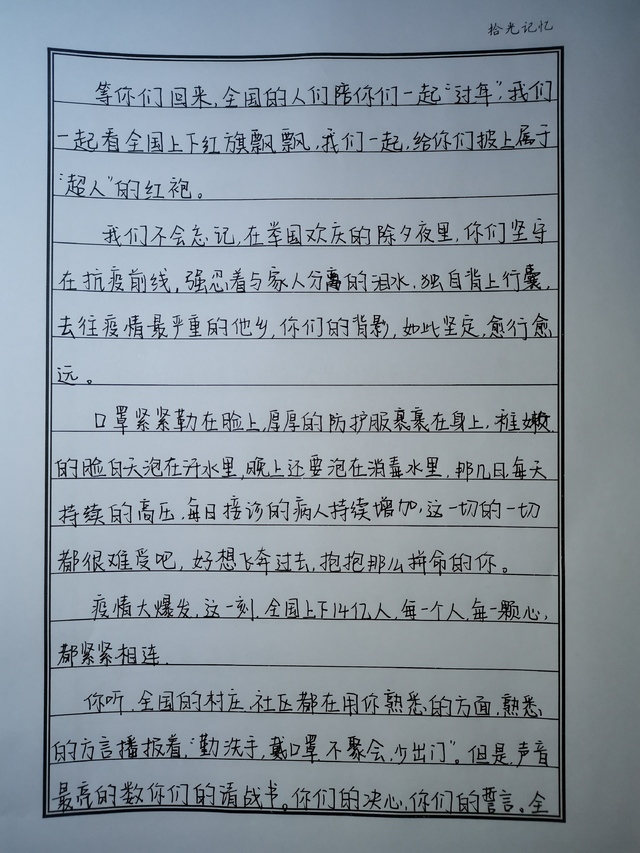 拾光记忆
等你们回来,全国的人们陪你们一起“过年”,我们
一起看全国上下红旗飘飘,我们一起,给你们披上属于
“超人”的红袍。
我们不会忘记,在举国欢庆的除夕夜里,你们坚守
在抗疫前线,强忍着与家人分离的泪水,独自背上行囊,
去往疫情最严重的他乡,你们的背影,如此坚定,愈行愈
远。
口罩紧紧勒在脸上,厚厚的防护服裹裹在身上,稚嫩
的脸白天泡在汗水里,晚上还要泡在消毒水里,那几日,每天
持续的高压,每日接诊的病人持续增加,这一切的一切
都很难受吧,好想飞奔过去,抱抱那么拼命的你。
疫情大爆发,这一刻,全国上下14亿人,每一个人,每一颗心,
都紧紧相连.
你听,全国的村庄,社区都在用你熟悉的方面,熟悉
的方言播报着,“勤洗手,戴口罩,不聚会,少出门”。但是,声音
最亮的数你们的请战书。你们的决心,你们的誓言。全